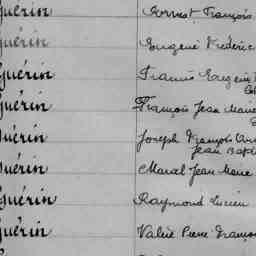 Guérin Ernest François
Guérin Eugène Frédéric
Guérin Francis Eugène
Guérin François Jean Marie
Guérin Joseph François
Jean Bapt
Guérin Marcel Jean Marie
Guérin Raymond Lucien
Guérin Valère Pierre François